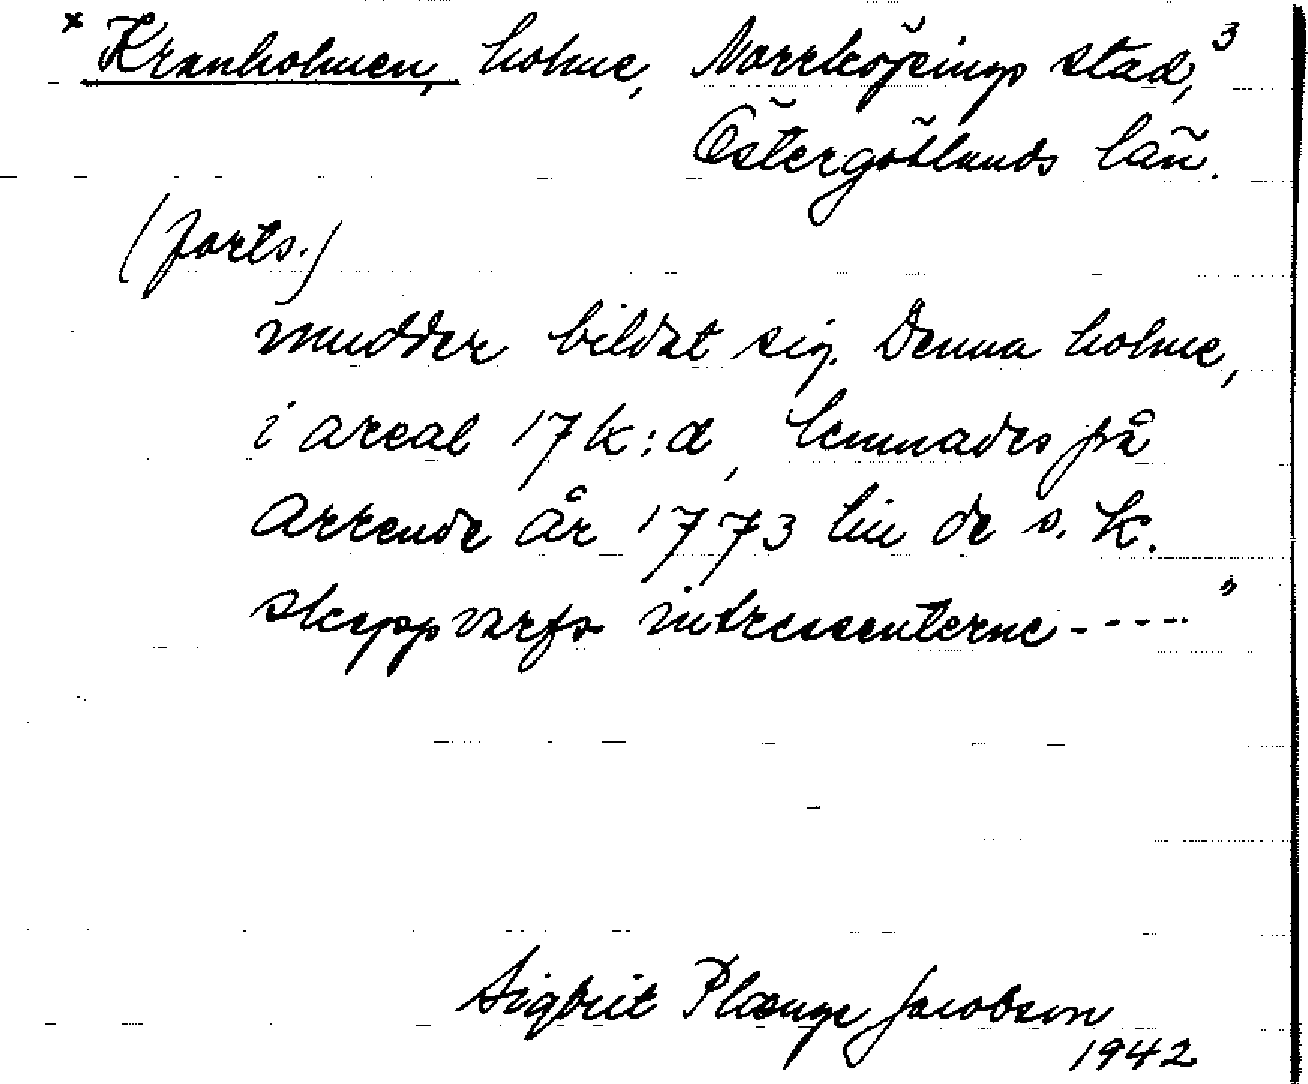 x Kranholmen, holme, Norrköpings stad, 3
Östergötlands län.
(forts.)
mudder bildat sig. Denna holme,
i areal 17 k:d, lemnades på
arrende år 1773 till de s. k.
skeppvarfs intressenterne ----- "
Sigbrit Plænge Jacobson
1942